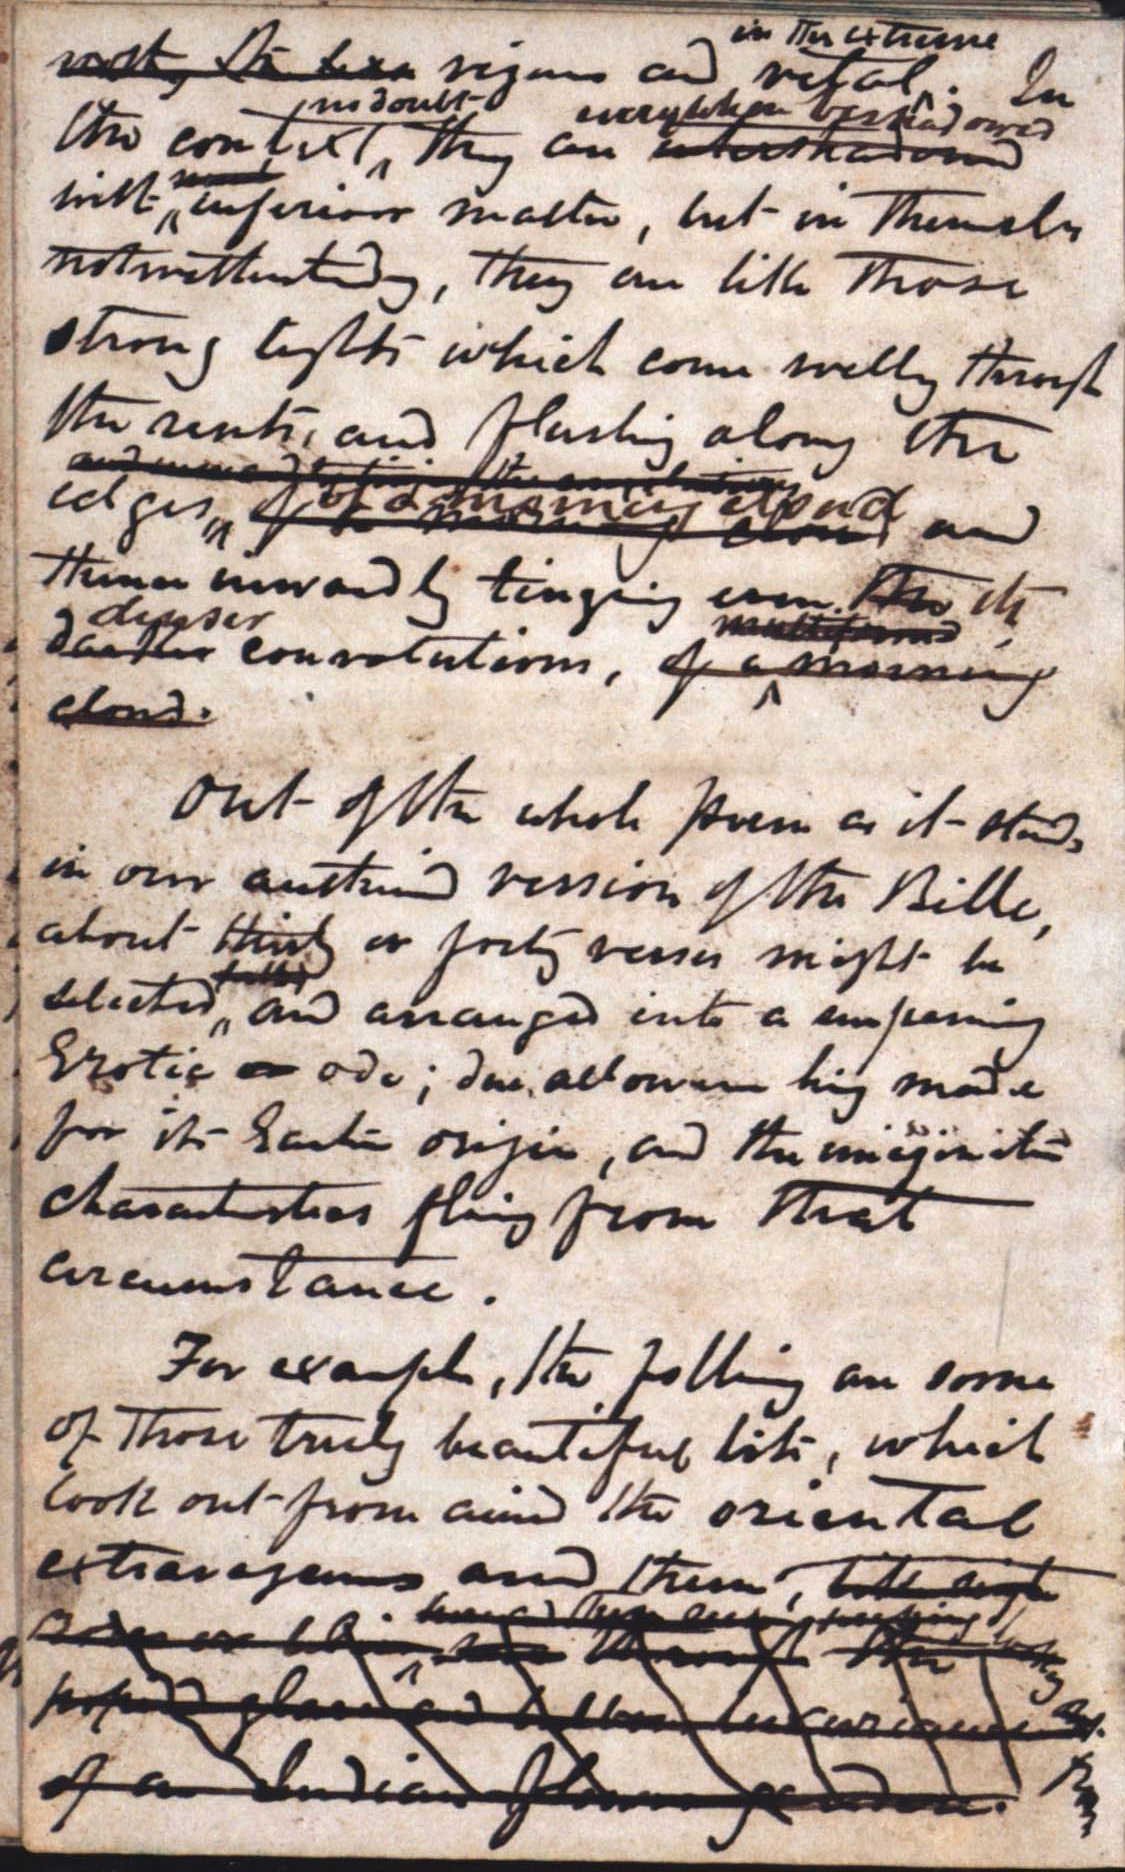 in the extreme
vigorous and vital. In
no doubt everywhere beshadowed
the context, they are overshadowed
with inferior matter, but in themselves
notwithstanding, they are like those
strong lights which come welling through
the rents, and flushing along the
of a morning cloud
edges, of a morning cloud and
thence inwardly tinging even the its
deeper multiformed
darker convolutions, of a morning
cloud.
Out of the whole poem as it stands
in our version of the Bible,
about thirty or forty verses might be
selected, and arranged into a surpassing
Erotic ode; due allowance being made
for its Eastern origin, and the imaginative
characteristics flowing from that
circumstance.
For example, the following are some
of those truly beautiful bits, which
look out from amid the oriental
extravagances around them,
peeping
luxuriance
of an Indian flower garden.